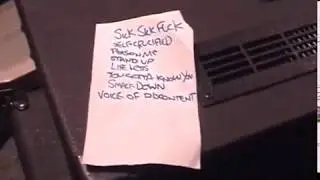 SICK SICK FUCK
SELF CRUCIFIED
POISON ME
STAND UP
LIFELESS
YOU GOTTA KNOW YOU
SMACKDOWN
VOICE OF DISCONTENT